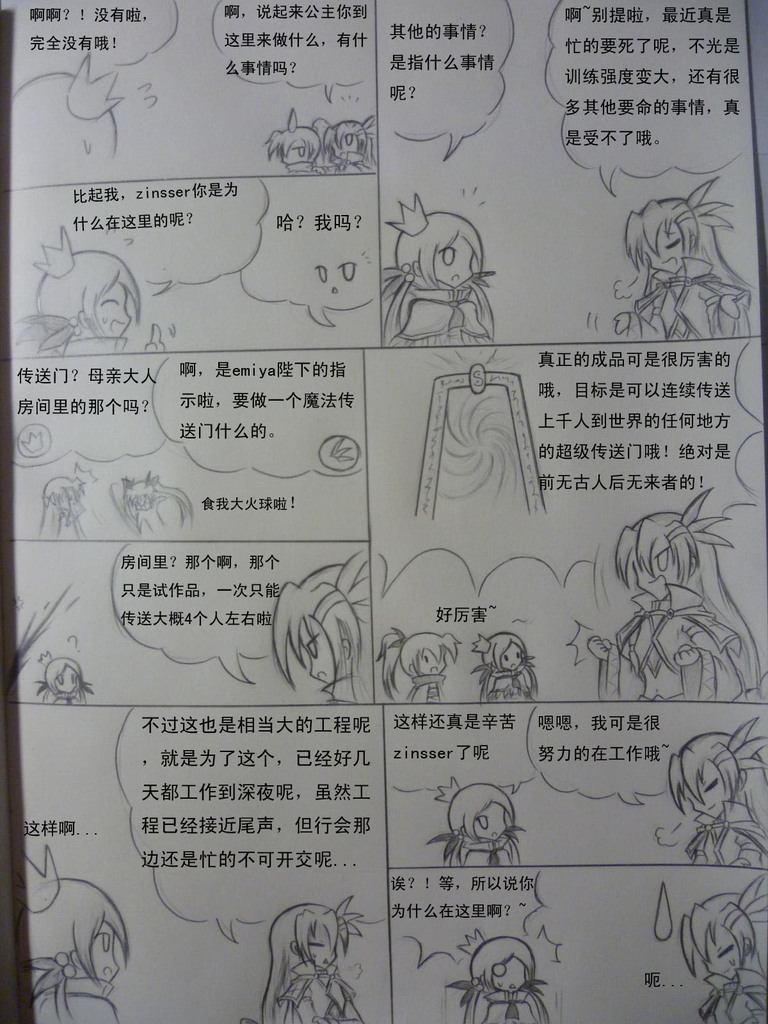 啊，说起来公主你到
这里来做什么，有什
么事情吗？
啊啊？！没有啦，
完全没有哦！
比起我，zinsser你是为
什么在这里的呢？
哈？我吗？
啊~别提啦，最近真是
忙的要死了呢，不光是
训练强度变大，还有很
多其他要命的事情，真
是受不了哦。
其他的事情？
是指什么事情
呢？
啊，是emiya陛下的指
示啦，要做一个魔法传
送门什么的。
传送门？母亲大人
房间里的那个吗？
食我大火球啦！
房间里？那个啊，那个
只是试作品，一次只能
传送大概4个人左右啦
?
S
真正的成品可是很厉害的
哦，目标是可以连续传送
上千人到世界的任何地方
的超级传送门哦！绝对是
前无古人后无来者的！
好厉害~
不过这也是相当大的工程呢
，就是为了这个，已经好几
天都工作到深夜呢，虽然工
程已经接近尾声，但行会那
边还是忙的不可开交呢...
这样啊...
这样还真是辛苦
zinsser了呢
嗯嗯，我可是很
努力的在工作哦~
诶？！等，所以说你
为什么在这里啊？~
呃...